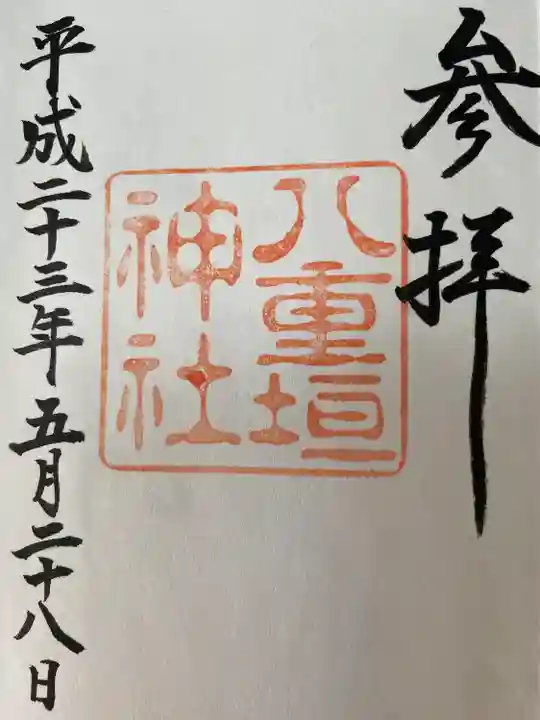 参拝
八重垣
神社
平成二十三年五月二十八日